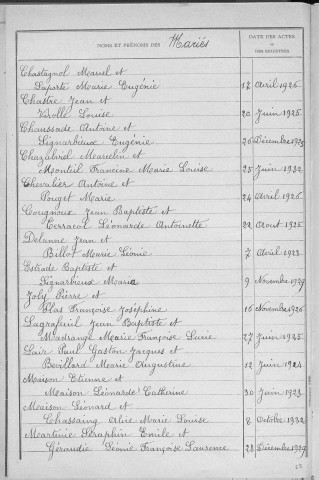 NOMS ET PRÉNOMS DES Mariés
DATE DES ACTES
ET
DES REGISTRES
Chastagnol Marcel et
Laporte Marie Eugénie 17 Avril 1926
Chastre Jean et
Virolle Louise 20 Juin 1925
Chaussade Antoine et
Signarbieux Eugénie 26 Décembre 1925
Chazalviel Marcelin et
Monteil Francine Marie Louise 25 Juin 1932
Chevalier Antoine et
Pouget Marie 24 Avril 1926
Cougnoux Jean Baptiste et
Terracol Léonarde Antoinette 22 Aout 1925
Delanne Jean et
Billot Marie Léonie 7 Avril 1923
Estrade Baptiste et
Signarbieux Maria 9 Novembre 1929
Joly Pierre et
Plas Françoise Joséphine 16 Novembre 1926
Lagrafeuil Jean Baptiste et
Madrange Marie Françoise Lucie 27 Juin 1925
Lair Paul Gaston Jacques et
Bevillard Marie Augustine 12 Juin 1924
Maison Etienne et
Maison Léonarde Catherine 30 Juin 1923
Maison Léonard et
Chassaing Marie Louise 8 Octobre 1932
Martinie Séraphin Emile et
Géraudie Léonie Françoise Laurence 28 Décembre 1929